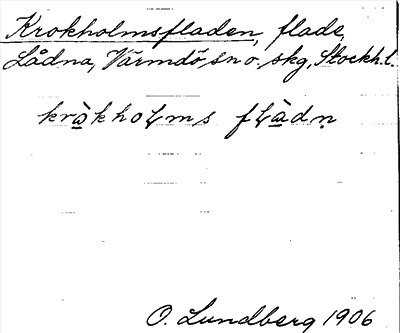 Krokholmsfladen, flade,
Lådna, Värmdö sn o. skg, Stockh. l.
kràkhoɫms fɫàdṇ
O. Lundberg 1906